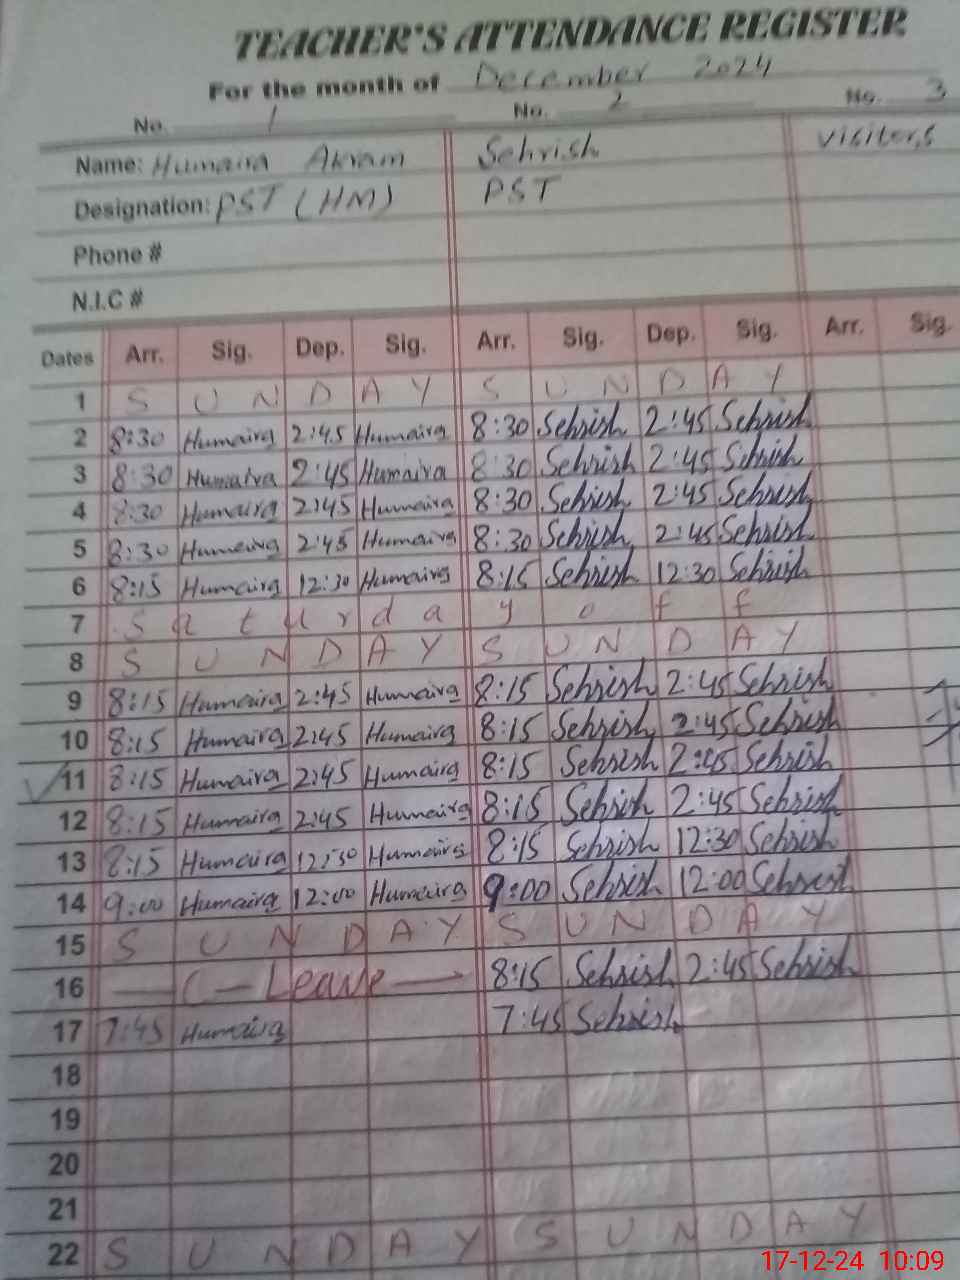 TEACHER'S ATTENDANCE REGISTER
For the month of December 2024
No. 1 No. 2 No. 3
Name: Humaira Akram Sehrish Visiters
Designation: PST (HM) PST
Phone #
N.I.C #
Dates Arr. Sig. Dep. Sig. Arr. Sig. Dep. Sig. Arr. Sig.
1 S U N D A Y S U N D A Y
2 8:30 Humaira 2:45 Humaira 8:30 Sehrish 2:45 Sehrish
3 8:30 Humaira 2:45 Humaira 8:30 Sehrish 2:45 Sehrish
4 8:30 Humaira 2:45 Humaira 8:30 Sehrish 2:45 Sehrish
5 8:30 Humaira 2:45 Humaira 8:30 Sehrish 2:45 Sehrish
6 8:15 Humaira 12:30 Humaira 8:15 Sehrish 12:30 Sehrish
7 S a t u r d a y o f f
8 S U N D A Y S U N D A Y
9 8:15 Humaira 2:45 Humaira 8:15 Sehrish 2:45 Sehrish
10 8:15 Humaira 2:45 Humaira 8:15 Sehrish 2:45 Sehrish
11 8:15 Humaira 2:45 Humaira 8:15 Sehrish 2:45 Sehrish
12 8:15 Humaira 2:45 Humaira 8:15 Sehrish 2:45 Sehrish
13 8:15 Humaira 12:30 Humaira 8:15 Sehrish 12:30 Sehrish
14 9:00 Humaira 12:00 Humaira 9:00 Sehrish 12:00 Sehrish
15 S U N D A Y S U N D A Y
16 — C - Leave — 8:15 Sehrish 2:45 Sehrish
17 7:45 Humaira 7:45 Sehrish
18
19
20
21
22 S U N D A Y S U N D A Y
17-12-24 10:09